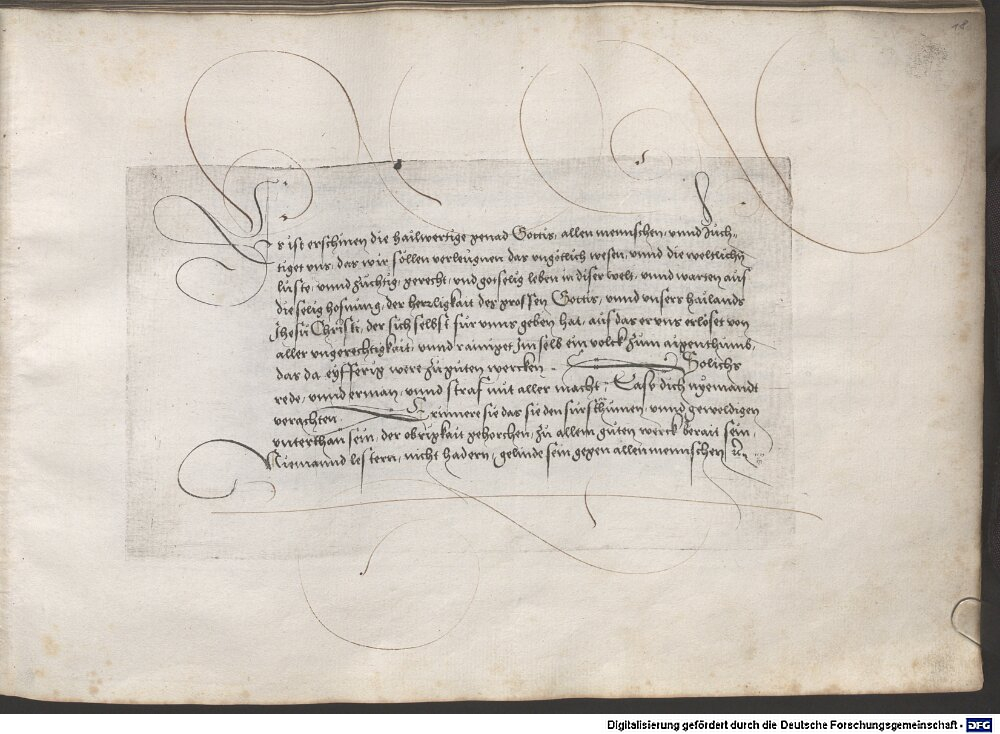 18
Es ist erschinen die hailwertige genad Gottis, allen mennschen, vnnd züch-
tiget vns, das wir sollen verleugnen das vngötlich wesen, vnnd die weltlichn
lüste, vnnd züchtig, gerecht, vnd gotselig leben in diser welt, vnnd warten auf
die selig hofnung, der herrligkait des grossen Gottis, vnnd vnsers hailands
Jhesu Christi, der sich selbst für vnns geben hat, auf das er vns erlöset von
aller vngerechtigkait, vnnd rainiget Im selb ein volck zum aigenthumb,
das da eyfferig were zu guten wercken. Solichs
rede, vnnd erman, vnnd straf mit aller macht, Lass dich nyemandt
verachten. Erinnere sie das sie den fürsthumen, vnnd geweldigen
vnterthan sein, der obrigkait gehorchen, zu allem guten werck berait sein,
Niemannd lestern, nicht hadern, gelinde sein gegen allen mennschen
Digitalisierung gefördert durch die Deutsche Forschungsgemeinschaft - DFG